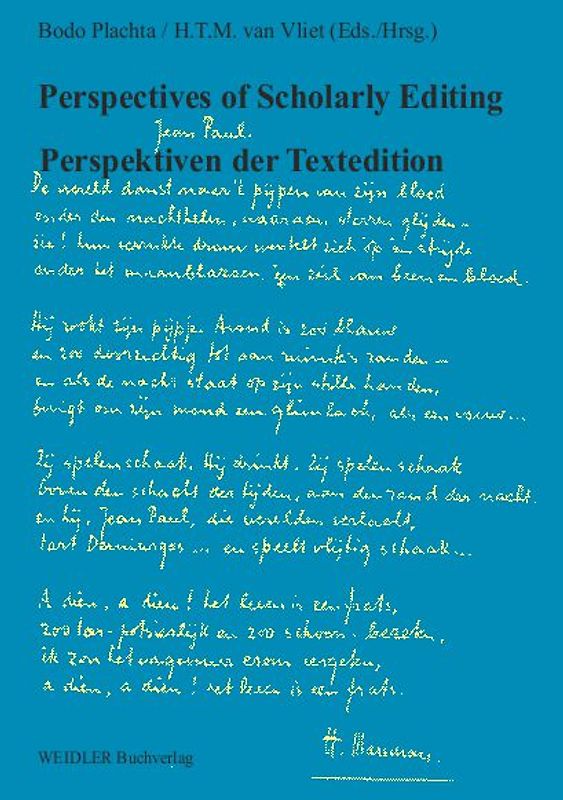 Bodo Plachta / H.T.M. van Vliet (Eds./Hrsg.)
Perspectives of Scholarly Editing
Jean Paul.
Perspektiven der Textedition
De wereld danst naar 't pijpen van zijn bloed
onder den nachthelm, waaraan sterren glijden –
zie! hun droom zich op en
onder het van been en bloed.
Hij rookt zijn pijpje. Avond is zoo blauw
en zoo doorzichtig tot aan randen –
en als de nacht staat op zijn stille handen,
buigt om zijn mond een glimlach, als een vouw...
Zij spelen schaak. Hij drinkt. Zij spelen schaak
boven den schacht der tijden, aan den rand der nacht.
en hij, Jean Paul, die werelden verlacht,
tart Demiurgos ... en speelt vlijtig schaak...
A dieu, a dieu! het leven is een frats,
zoo potsierlijk en zoo schoon bezeten,
ik zou het vergeten,
a dieu, a dieu! het leven is een frats.
H. Marsman.
WEIDLER Buchverlag